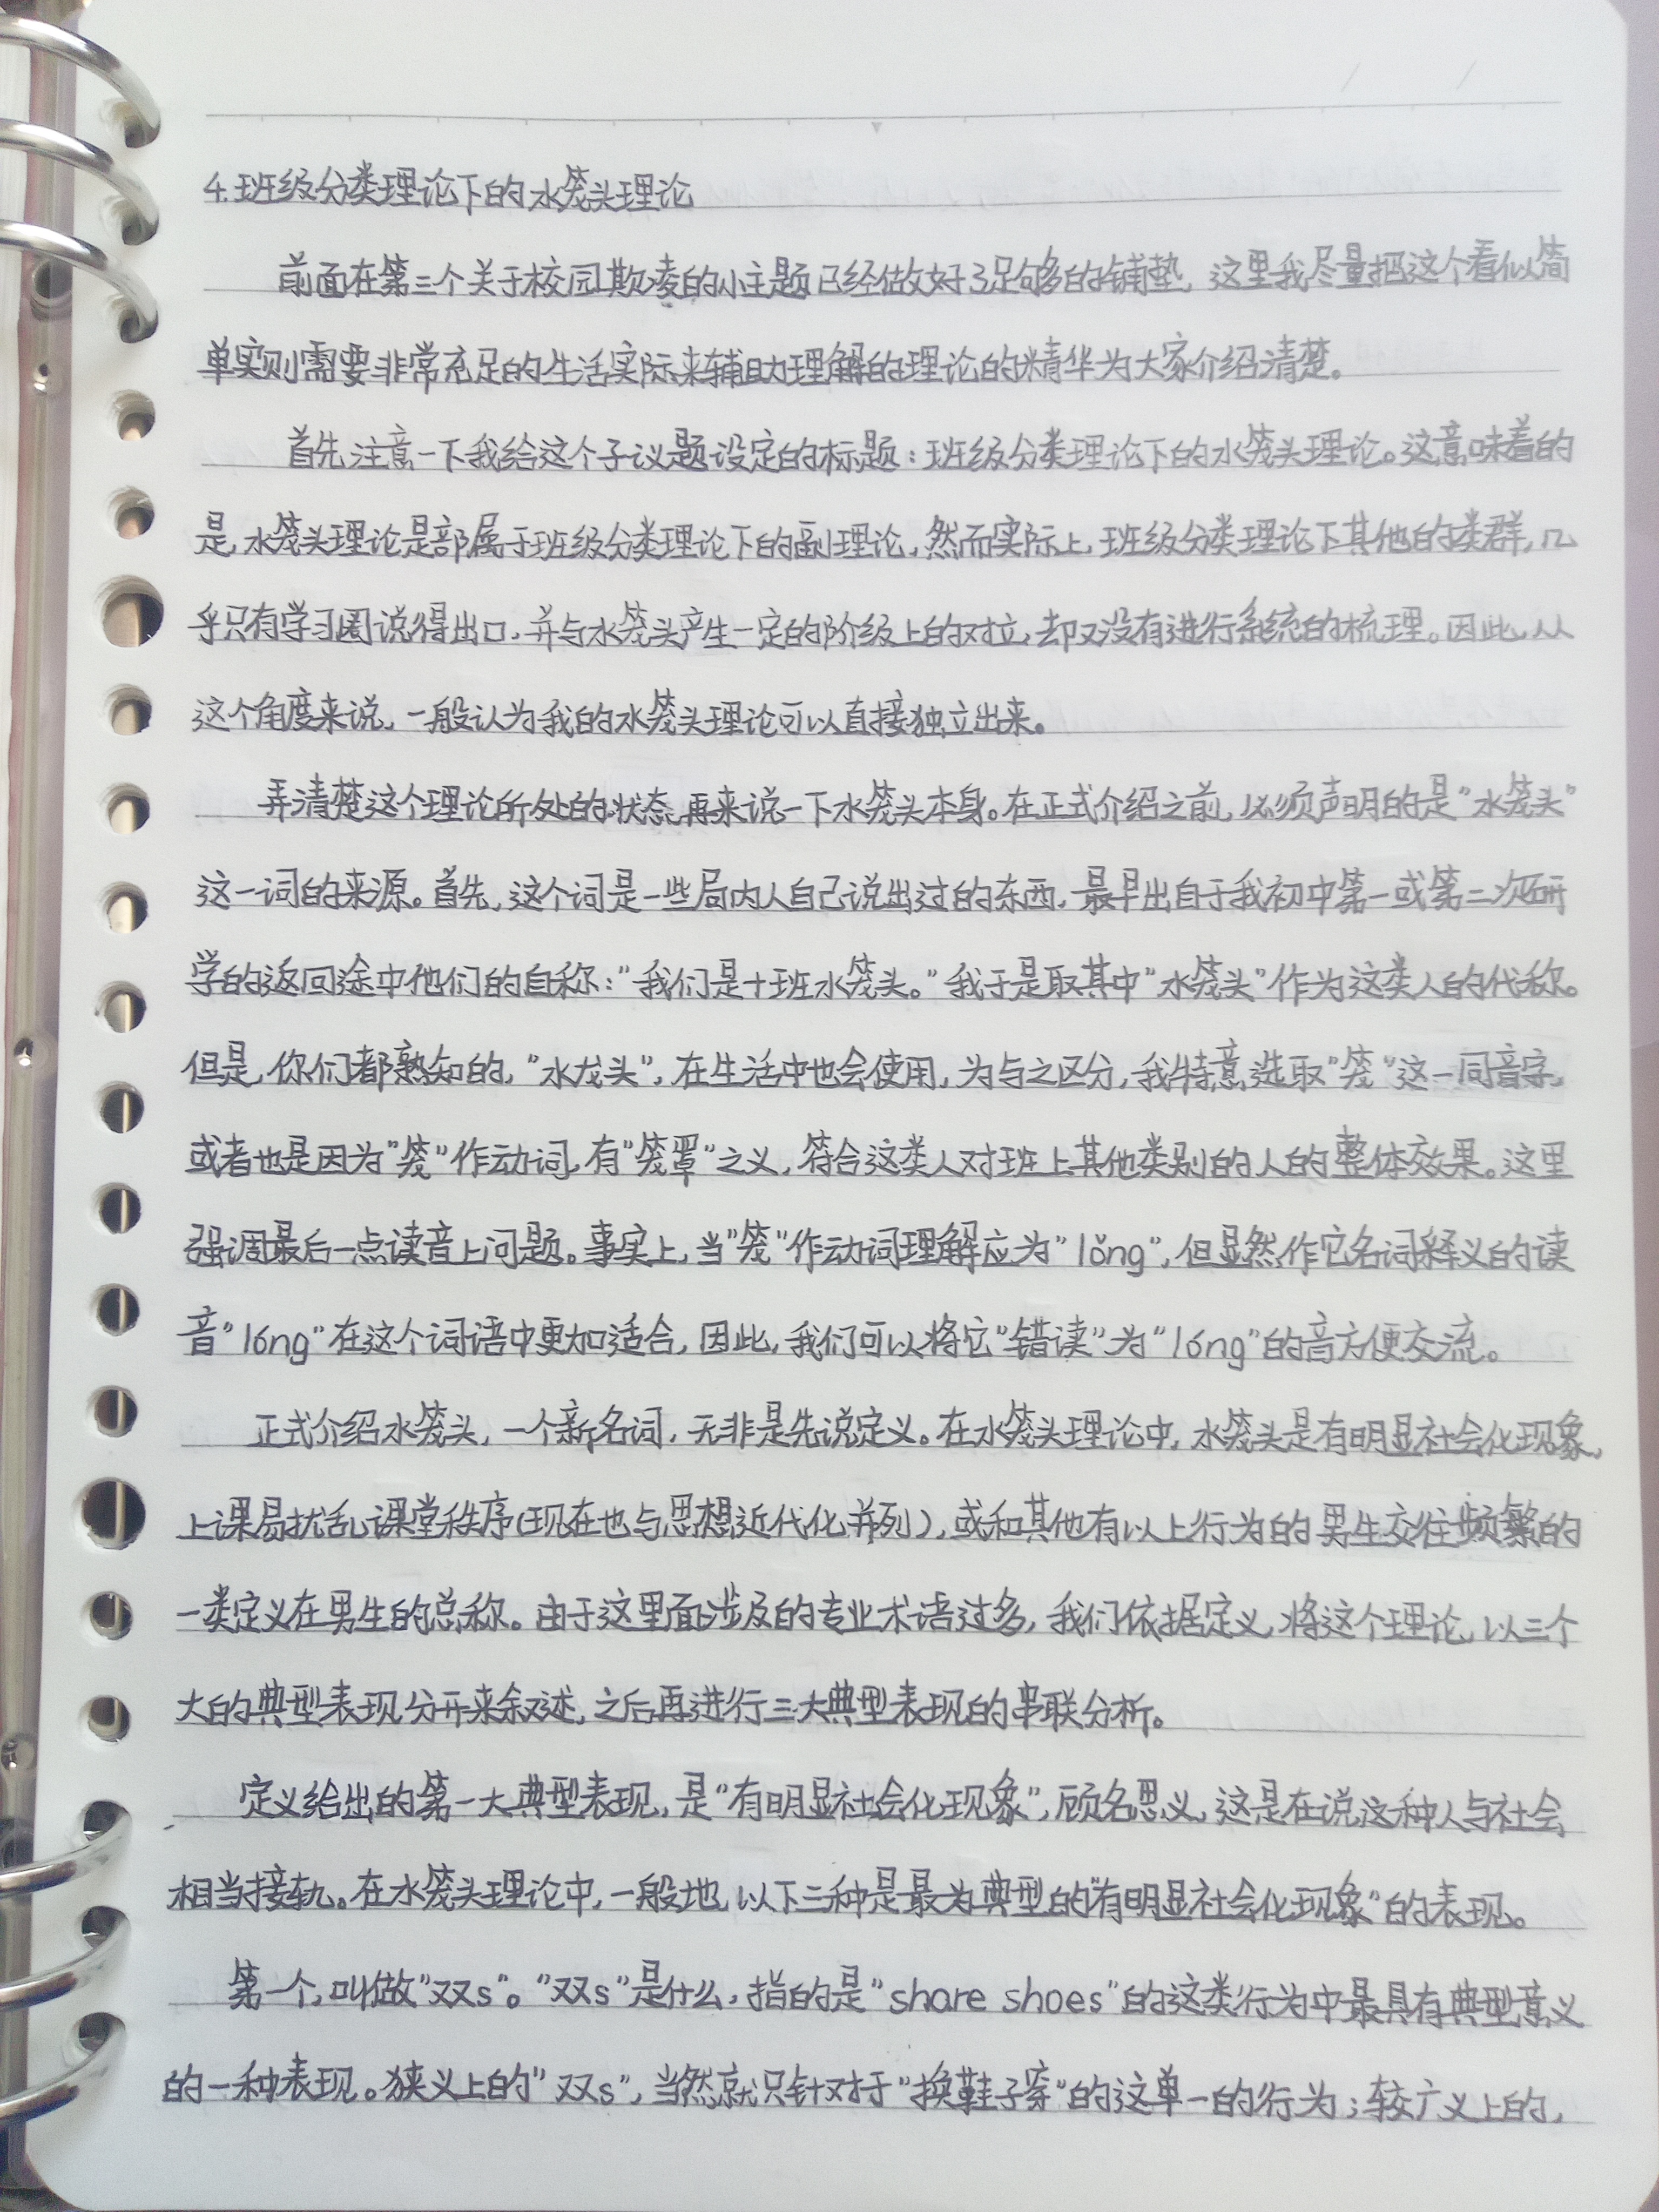 4.班级分类理论下的水笼头理论
前面在第三个关于校园欺凌的小主题已经做好了足够多的铺垫，这里我尽量把这个看似简
单实则需要非常充足的生活实际来辅助理解的理论的精华为大家介绍清楚。
首先注意一下我给这个子议题设定的标题：班级分类理论下的水笼头理论。这意味着的
是，水笼头理论是部属于班级分类理论下的副理论，然而实际上，班级分类理论下其他的类群，几
乎只有学习圈说得出口，并与水笼头产生一定的阶级上的对立，却又没有进行系统的梳理。因此，从
这个角度来说，一般认为我的水笼头理论可以直接独立出来。
弄清楚这个理论所处的状态，再来说一下水笼头本身。在正式介绍之前，必须声明的是“水笼头”
这一词的来源。首先，这个词是一些局内人自己说出过的东西，最早出自于我初中第一或第二次研
学的返回途中他们的自称：“我们是十班水笼头。”我于是取其中“水笼头”作为这类人的代称。
但是，你们都熟知的，“水龙头”，在生活中也会使用，为与之区分，我特意选取“笼”这一同音字，
或者也是因为“笼”作动词，有“笼罩”之义，符合这类人对班上其他类别的人的整体效果。这里
强调最后一点读音上问题。事实上，当“笼”作动词理解应为“lǒng”，但显然作它名词释义的读
音“lóng”在这个词语中更加适合，因此，我们可以将它“错读”为“lóng”的音方便交流。
正式介绍水笼头，一个新名词，无非是先说定义。在水笼头理论中，水笼头是有明显社会化现象，
上课易扰乱课堂秩序（现在也与思想近代化并列），或和其他有以上行为的男生交往频繁的
一类定义在男生的总称。由于这里面涉及的专业术语过多，我们依据定义，将这个理论，以三个
大的典型表现分开来叙述，之后再进行三大典型表现的串联分析。
定义给出的第一大典型表现，是“有明显社会化现象”，顾名思义，这是在说这种人与社会
相当接轨。在水笼头理论中，一般地，以下三种是最为典型的“有明显社会化现象”的表现。
第一个，叫做“双s”。“双s”是什么，指的是“share shoes”的这类行为中最具有典型意义
的一种表现。狭义上的“双s”，当然就只针对于“换鞋子穿”的这单一的行为；较广义上的，